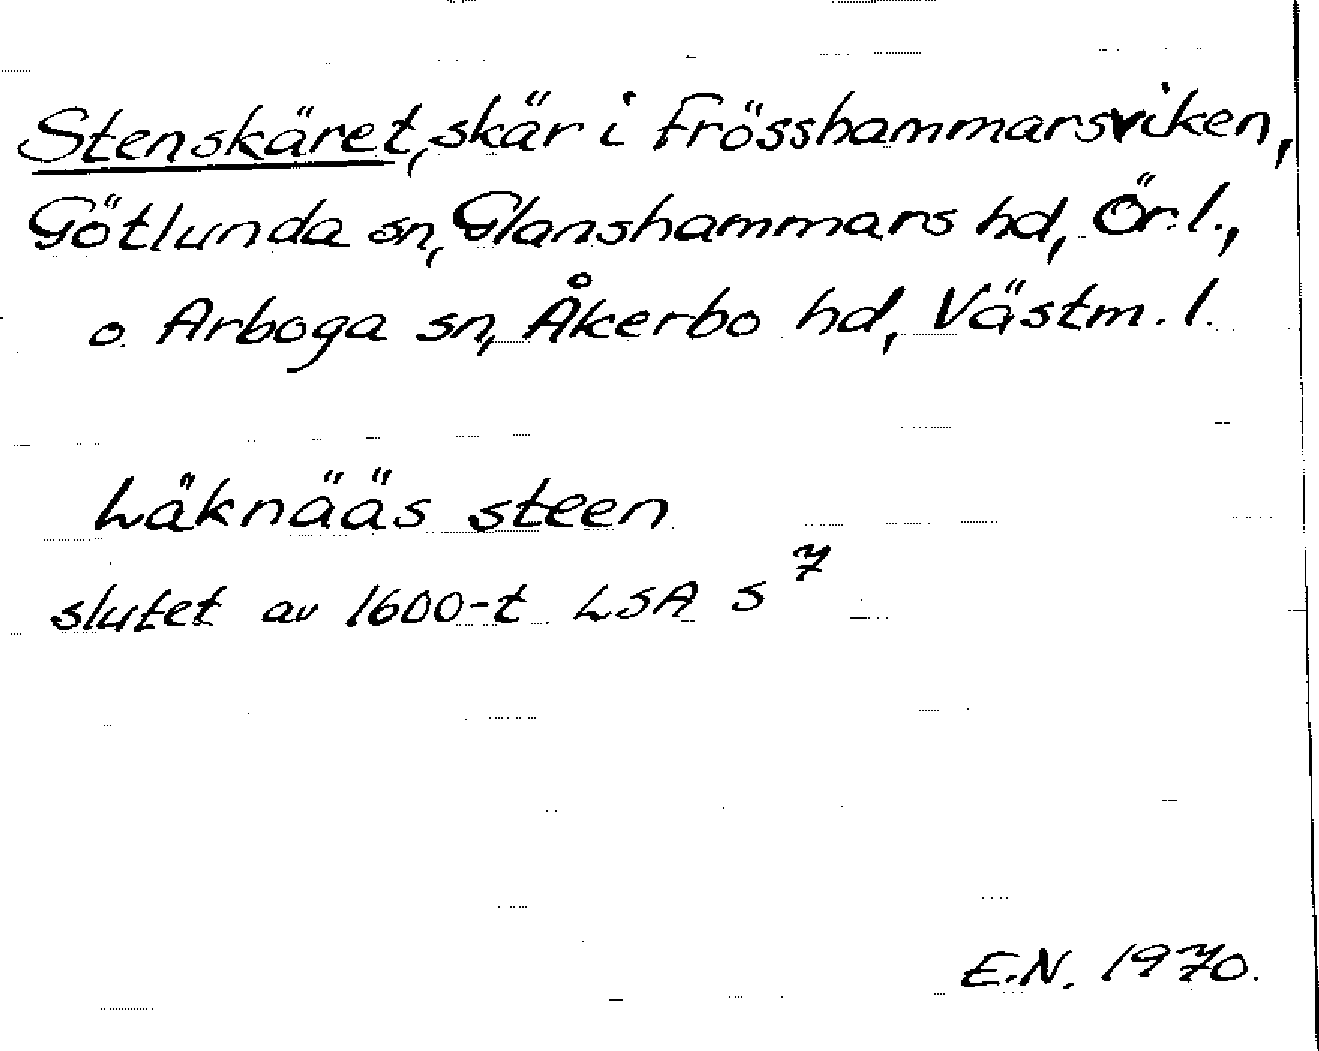 Stenskäret, skär i Frösshammarsviken,
Götlunda sn, Glanshammars hd, Ör. l.,
o. Arboga sn, Åkerbo hd, Västm. l.
Läknääs steen
slutet av 1600-t LSA S⁷
E.N. 1970.